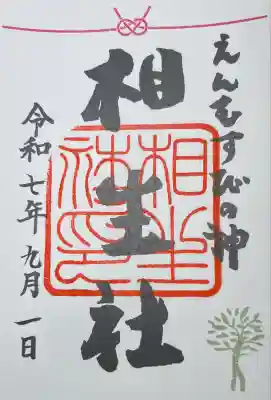 えんむすびの神
相生社
相生
社印
令和七年九月一日